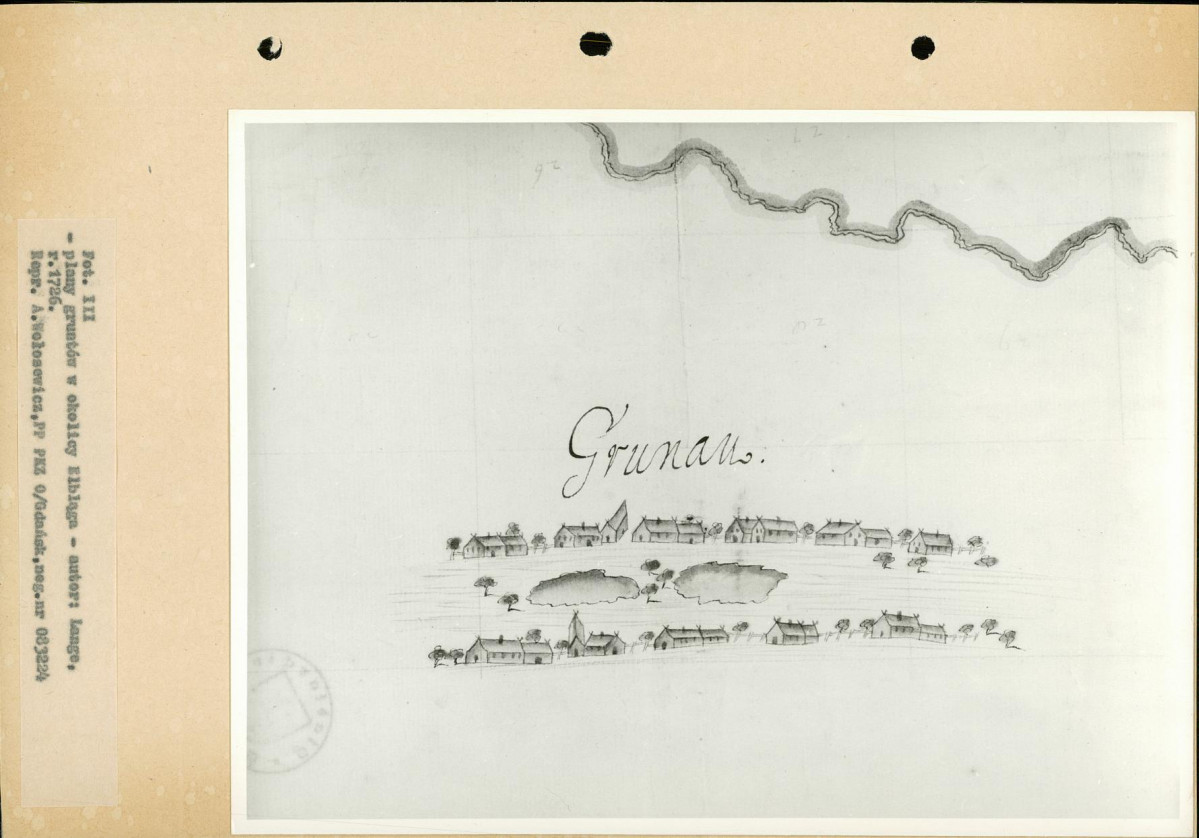 Grunau.
Fot. III
- plany gruntów w okolicy Elbląga - autor: Lange,
r.1726.
Repr. A.Wołosewicz,PP PKZ O/Gdańsk,neg.nr 083224